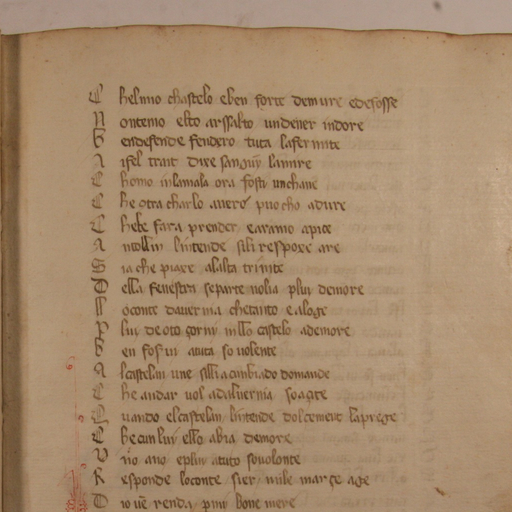 C helmio chastelo eben forte demure edefosse
N ontemo elto arssalto undener indore
B endefende fendero tuta lafermite
A isel trait dire sanguin lamire
C homo inlamala ora fosti unchane
C he otra charlo avero puocho adure
C hebe fara prender earamo apice
A ntolliu lintende sili respoxe are
S ia che piaxe alalta trinite
D ella fenestra separte nolia pluy demore
N oconte daver nia chetanto ealoge
P luy de oto gorni inllo castelo ademore
B en fosin atuta so volente
A lcastelan une silli acanbiado domande
C he andar vol adalvernia so agite
Q uando elcastelan lintende dolcement laprege
C he cun luy ello abia demore
V no ano epluy atuto sovolonte
R esponde loconte sier mile marçe age
D io ve renda pluy bone mere